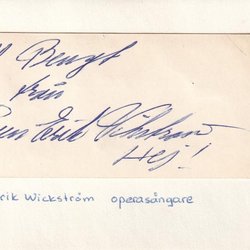 Bengt
från
Erik
Hej!
rik Wickström operasångare